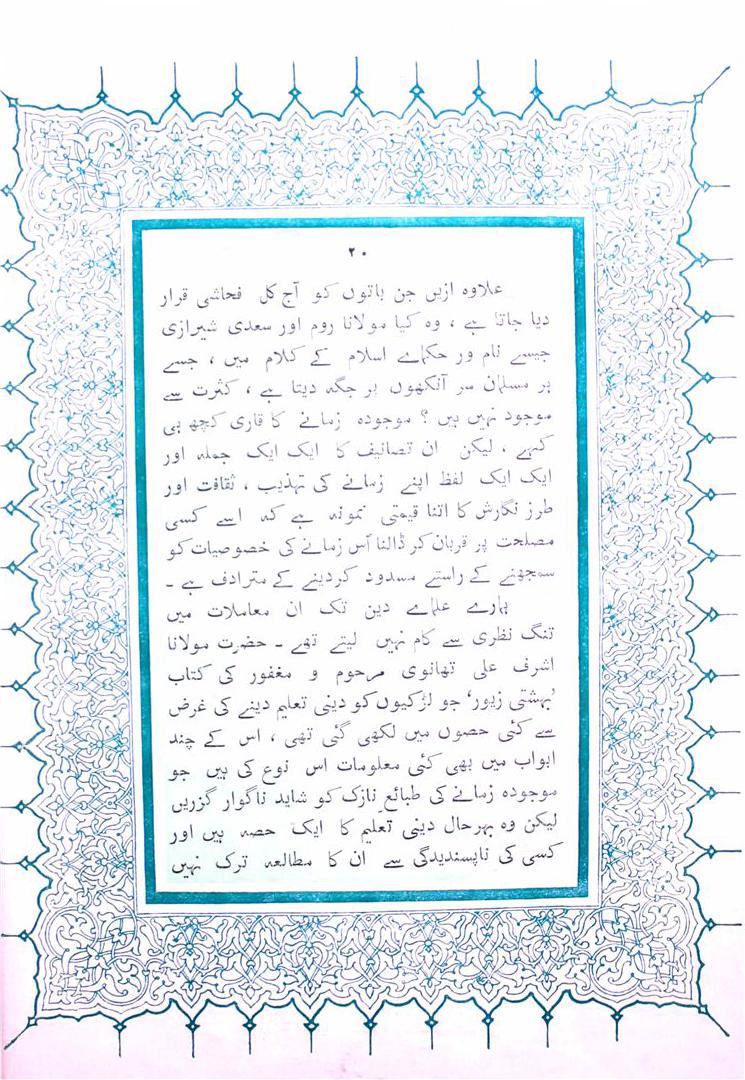 ۲۰
علاوہ ازیں جن باتوں کو آج کل فحاشی قرار
دیا جاتا ہے ، وہ کیا مولانا روم اور سعدی شیرازی
جیسے نام ور حکماے اسلام کے کلام میں ، جسے
ہر مسلمان سر آنکھوں پر جگہ دیتا ہے ، کثرت سے
موجود نہیں ہیں ؟ موجودہ زمانے کا قاری کچھ ہی
کہے ، لیکن ان تصانیف کا ایک ایک جملہ اور
ایک ایک لفظ اپنے زمانے کی تہذیب ، ثقافت اور
طرز نگارش کا اتنا قیمتی نمونہ ہے کہ اسے کسی
مصلحت پر قربان کر ڈالنا اُس زمانے کی خصوصیات کو
سمجھنے کے راستے مسدود کر دینے کے مترادف ہے ۔
ہمارے علماے دین تک ان معاملات میں
تنگ نظری سے کام نہیں لیتے تھے ۔ حضرت مولانا
اشرف علی تھانوی مرحوم و مغفور کی کتاب
’بہشتی زیور‘ جو لڑکیوں کو دینی تعلیم دینے کی غرض
سے کئی حصوں میں لکھی گئی تھی ، اس کے چند
ابواب میں بھی کئی معلومات اس نوع کی ہیں جو
موجودہ زمانے کی طبائعِ نازک کو شاید ناگوار گزریں
لیکن وہ بہرحال دینی تعلیم کا ایک حصہ ہیں اور
کسی کی ناپسندیدگی سے ان کا مطالعہ ترک نہیں